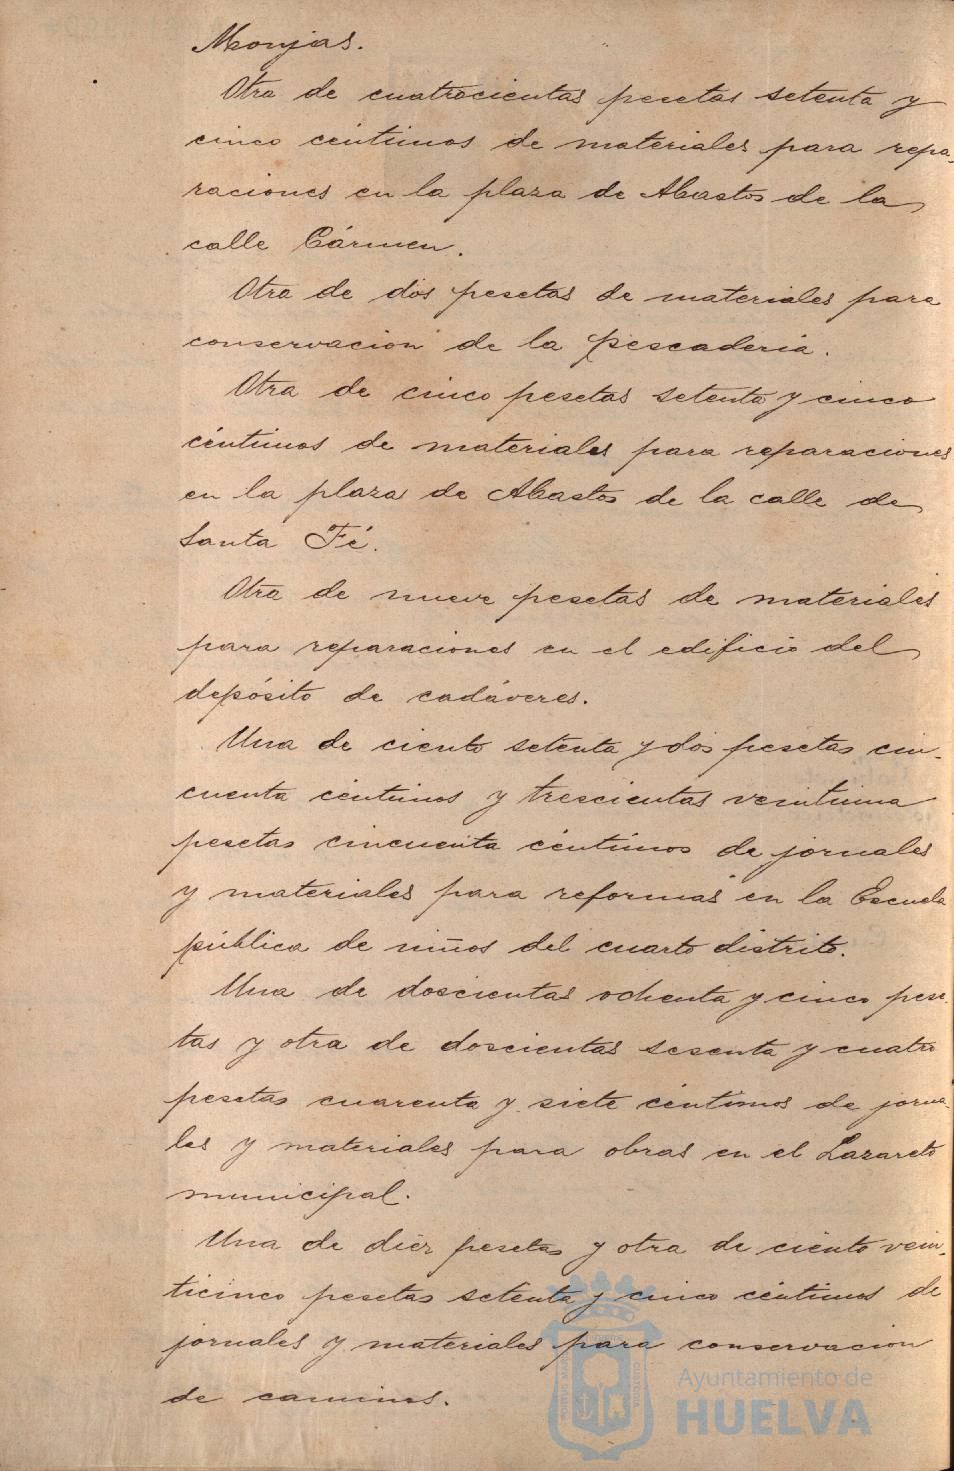 Monjas.
Otra de cuatrocientas pesetas setenta y
cinco céntimos de materiales para repa-
raciones en la plaza de Abastos de la
calle Cármen.
Otra de dos pesetas de materiales para
conservacion de la pescaderia.
Otra de cinco pesetas setenta y cinco
céntimos de materiales para reparaciones
en la plaza de Abastos de la calle de
Santa Fé.
Otra de nueve pesetas de materiales
para reparaciones en el edificio del
depósito de cadáveres.
Una de ciento setenta y dos pesetas cin-
cuenta céntimos y trescientas veintiuna
pesetas cincuenta céntimos de jornales
y materiales para reformas en la Escuela
pública de niños del cuarto distrito.
Una de doscientas ochenta y cinco pese-
tas y otra de doscientas sesenta y cuatro
pesetas cuarenta y siete céntimos de jorna-
les y materiales para obras en el Lazareto
municipal.
Una de diez pesetas y otra de ciento vein-
ticinco pesetas setenta y cinco céntimos de
jornales y materiales para conservacion
de caminos.
Ayuntamiento de
HUELVA